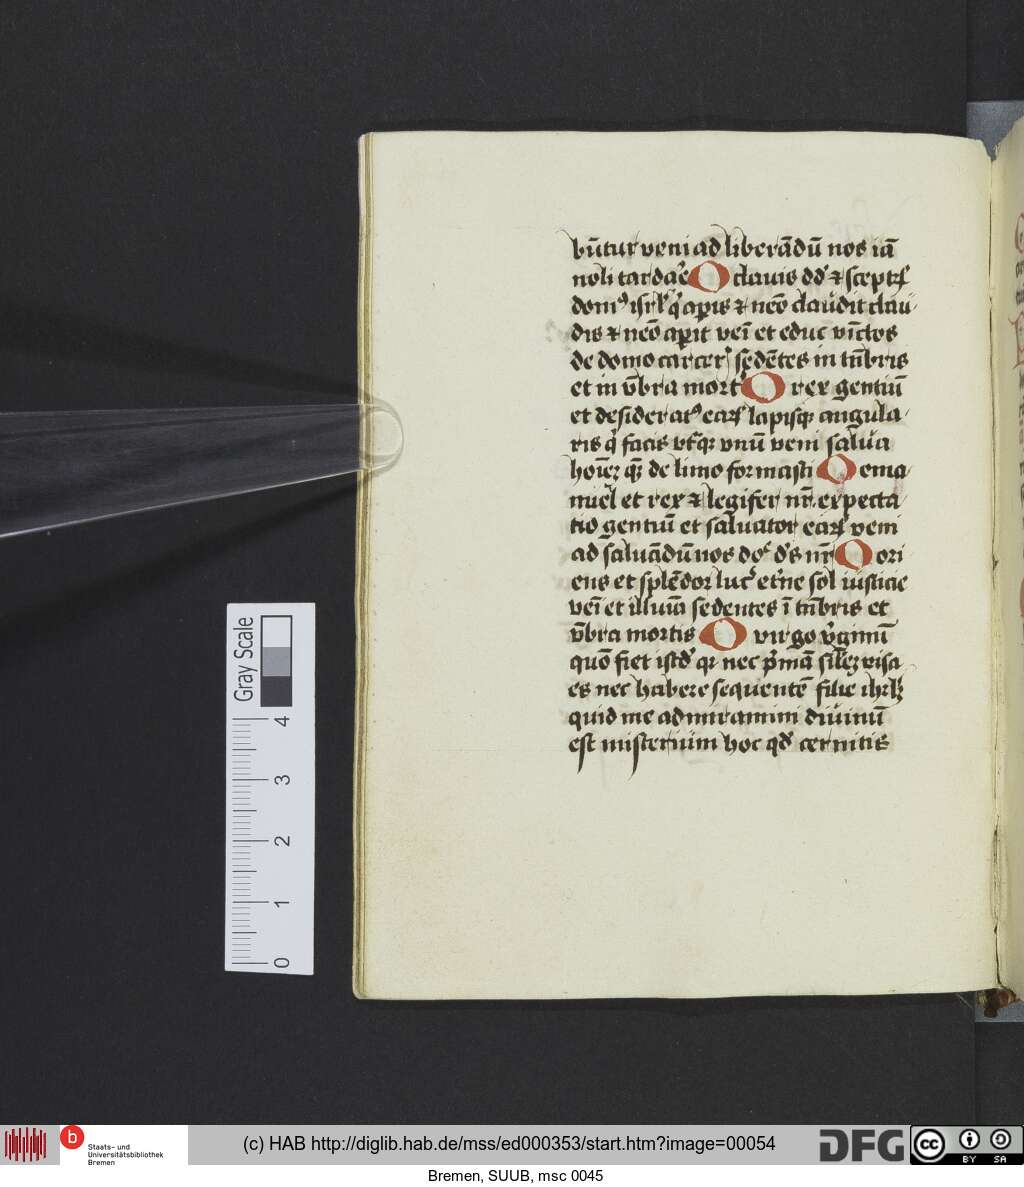 būtur veni ad liberādū nos iā
noli tardar̉e O clauis dd̉ ⁊ sceptꝝ
domꝰ isrl̉ q̉ aꝑis ⁊ neō claudit clau
dis ⁊ neō aꝑit vei̅ et educ vīctos
de domo carcer̉ sedētes in tn̄bris
et in v̄bra mort̉ O rex gentiū
et desideratꝰ eaꝝ lapisqꝫ angula
ris q̉ facis vt̉qꝫ vnū veni salua
hoīeꝫ qꝫ de limo formasti O ema
nuel et rex ⁊ legifer nr̄ expecta
tio gentiū et saluator eaꝝ veni
ad saluādū nos do̅e d̉s nr̄ O ori
ens et splēdor luc̉ et̉ne sol iusticie
vei̅ et illuīa sedentes ī tn̄bris et
v̄bra mortis O virgo v̉ginū
quō fiet istd̉ qꝛ nec p̉mā sil̉eꝫ visa
es nec habere sequentē filie ihrl̉ꝫ
quid me admiramini diuinū
est misterium hoc qd̉ cernitis
Gray Scale
4
3
2
1
0
b
Staats- und
Universitätsbibliothek
Bremen
(c) HAB http://diglib.hab.de/mss/ed000353/start.htm?image=00054
DFG
cc BY SA
Bremen, SUUB, msc 0045